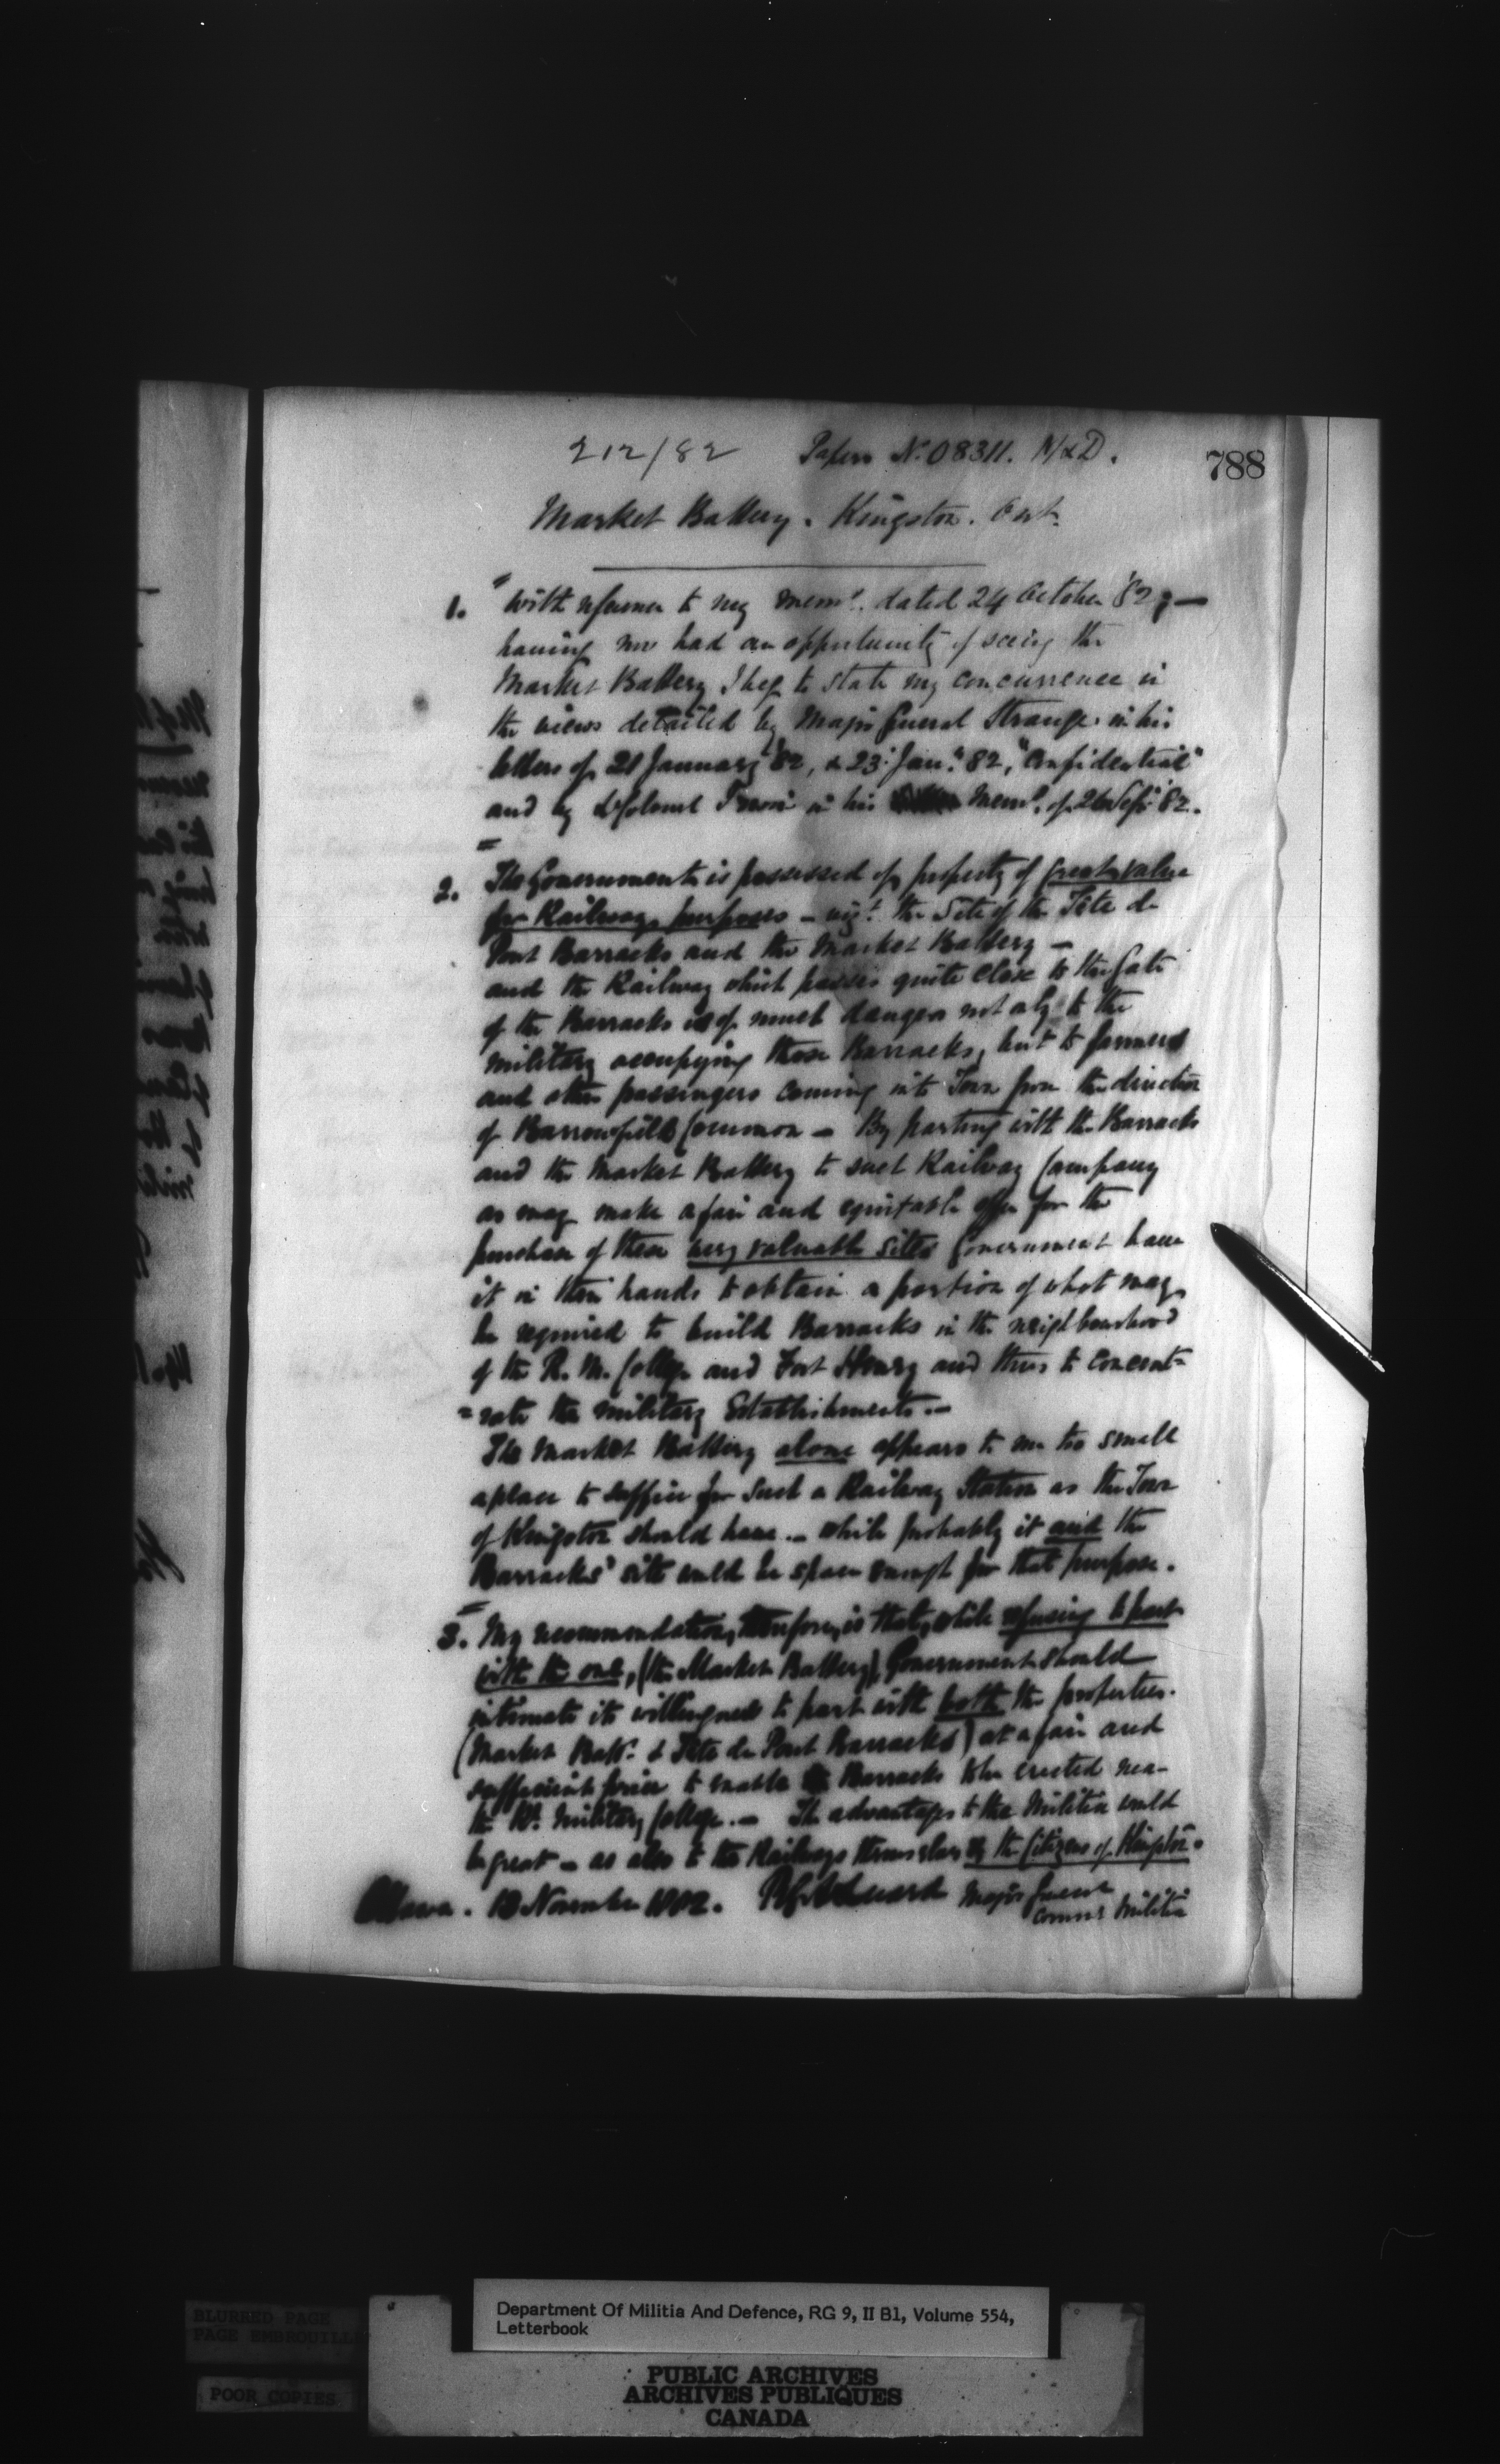 212/82 Papers No. 08311. M&D.
788
Market Battery. Kingston. Ont.
1. With reference to my memo. dated 24 October '82; —
having now had an opportunity of seeing the
Market Battery I beg to state my concurrence in
the views detailed by Major General Strange in his
letters of 21 January '82, & 23 Jan. 82, "Confidential"
and by Lt Colonel Irwin in his Memo. of 26 Sept '82.
2. The Government is possessed of property of great value
for Railway purposes – vizt. the Site of the Tête de
Pont Barracks and the Market Battery —
and the Railway which passes quite close to the Gate
of the Barracks is of much danger not only to the
military occupying those Barracks, but to farmers
and other passengers coming into Town from the direction
of Barriefield Common – By parting with the Barracks
and the Market Battery to such Railway Company
as may make a fair and equitable offer for the
purchase of these very valuable sites Government have
it in their hands to obtain a portion of what may
be required to build Barracks in the neighbourhood
of the R. M. College and Fort Henry and thus to concent=
=rate the military Establishments. —
The Market Battery alone appears to me too small
a place to suffice for such a Railway Station as the Town
of Kingston should have. – while probably it and the
Barracks' site would be space enough for that purpose.
3. My recommendation, therefore, is that, while refusing to part
with the one, (the Market Battery), Government should
intimate its willingness to part with both the properties.
(Market Batty. & Tête de Pont Barracks) at a fair and
sufficient price to enable Barracks to be erected near
the Rl. Military College. — The advantages to the Militia would
be great – as also to the Railways themselves & the Citizens of Kingston.
Ottawa. 13 November 1882. Major General
Comm Militia
Department Of Militia And Defence, RG 9, II B1, Volume 554,
Letterbook
BLURRED PAGE
PAGE EMBROUILLE
POOR COPIES
PUBLIC ARCHIVES
ARCHIVES PUBLIQUES
CANADA